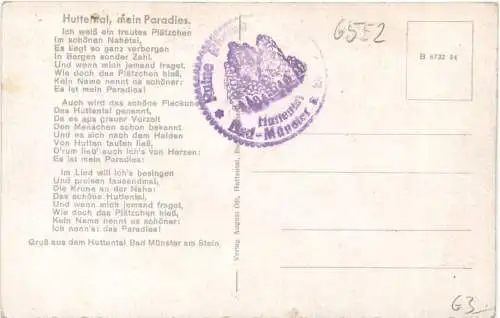 Huttental, mein Paradies.
Ich weiß ein trautes Plätzchen
Im schönen Nahetal,
Es liegt so ganz verborgen
In Bergen sonder Zahl.
Und wenn mich jemand fraget,
Wie doch das Plätzchen hieß,
Kein Name nennt es schöner:
Es ist mein Paradies!
Auch wird das schöne Fleckchen
Das Huttental genannt,
Da es aus grauer Vorzeit
Den Menschen schon bekannt
Und es sich nach dem Helden
Von Hutten taufen ließ,
D'rum lieb' auch ich's von Herzen:
Es ist mein Paradies!
Im Lied will ich's besingen
Und preisen tausendmal,
Die Krone an der Nahe:
Das schöne Huttental,
Und wenn mich jemand fraget,
Wie doch das Plätzchen hieß,
Kein Name nennt es schöner:
Ich nenn's: das Paradies!
Gruß aus dem Huttental Bad Münster am Stein
Verlag August Ott, Huttental,
Huttental
Bad-Münster a.
6552
B 6732 34
63